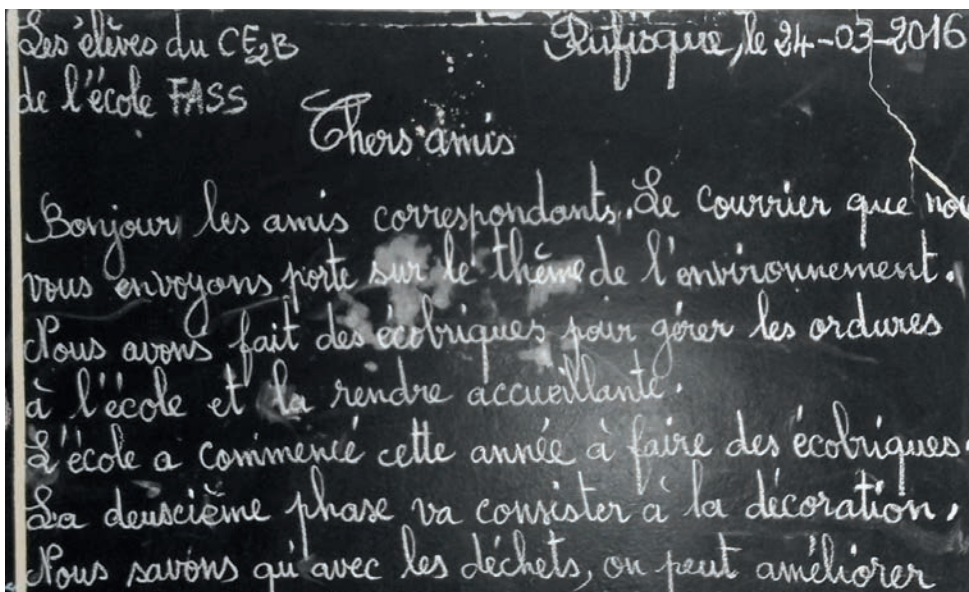 Les élèves du CE2B
Rufisque, le 24-03-2016
de l'école FASS
Chers amis
Bonjour les amis correspondants. Le courrier que nou
vous envoyons porte sur le thème de l'environnement.
Nous avons fait des écobriques pour gérer les ordures
à l'école et la rendre accueillante.
L'école a commencé cette année à faire des écobriques.
La deuxième phase va consister à la décoration,
Nous savons qu'avec les déchets, on peut améliorer